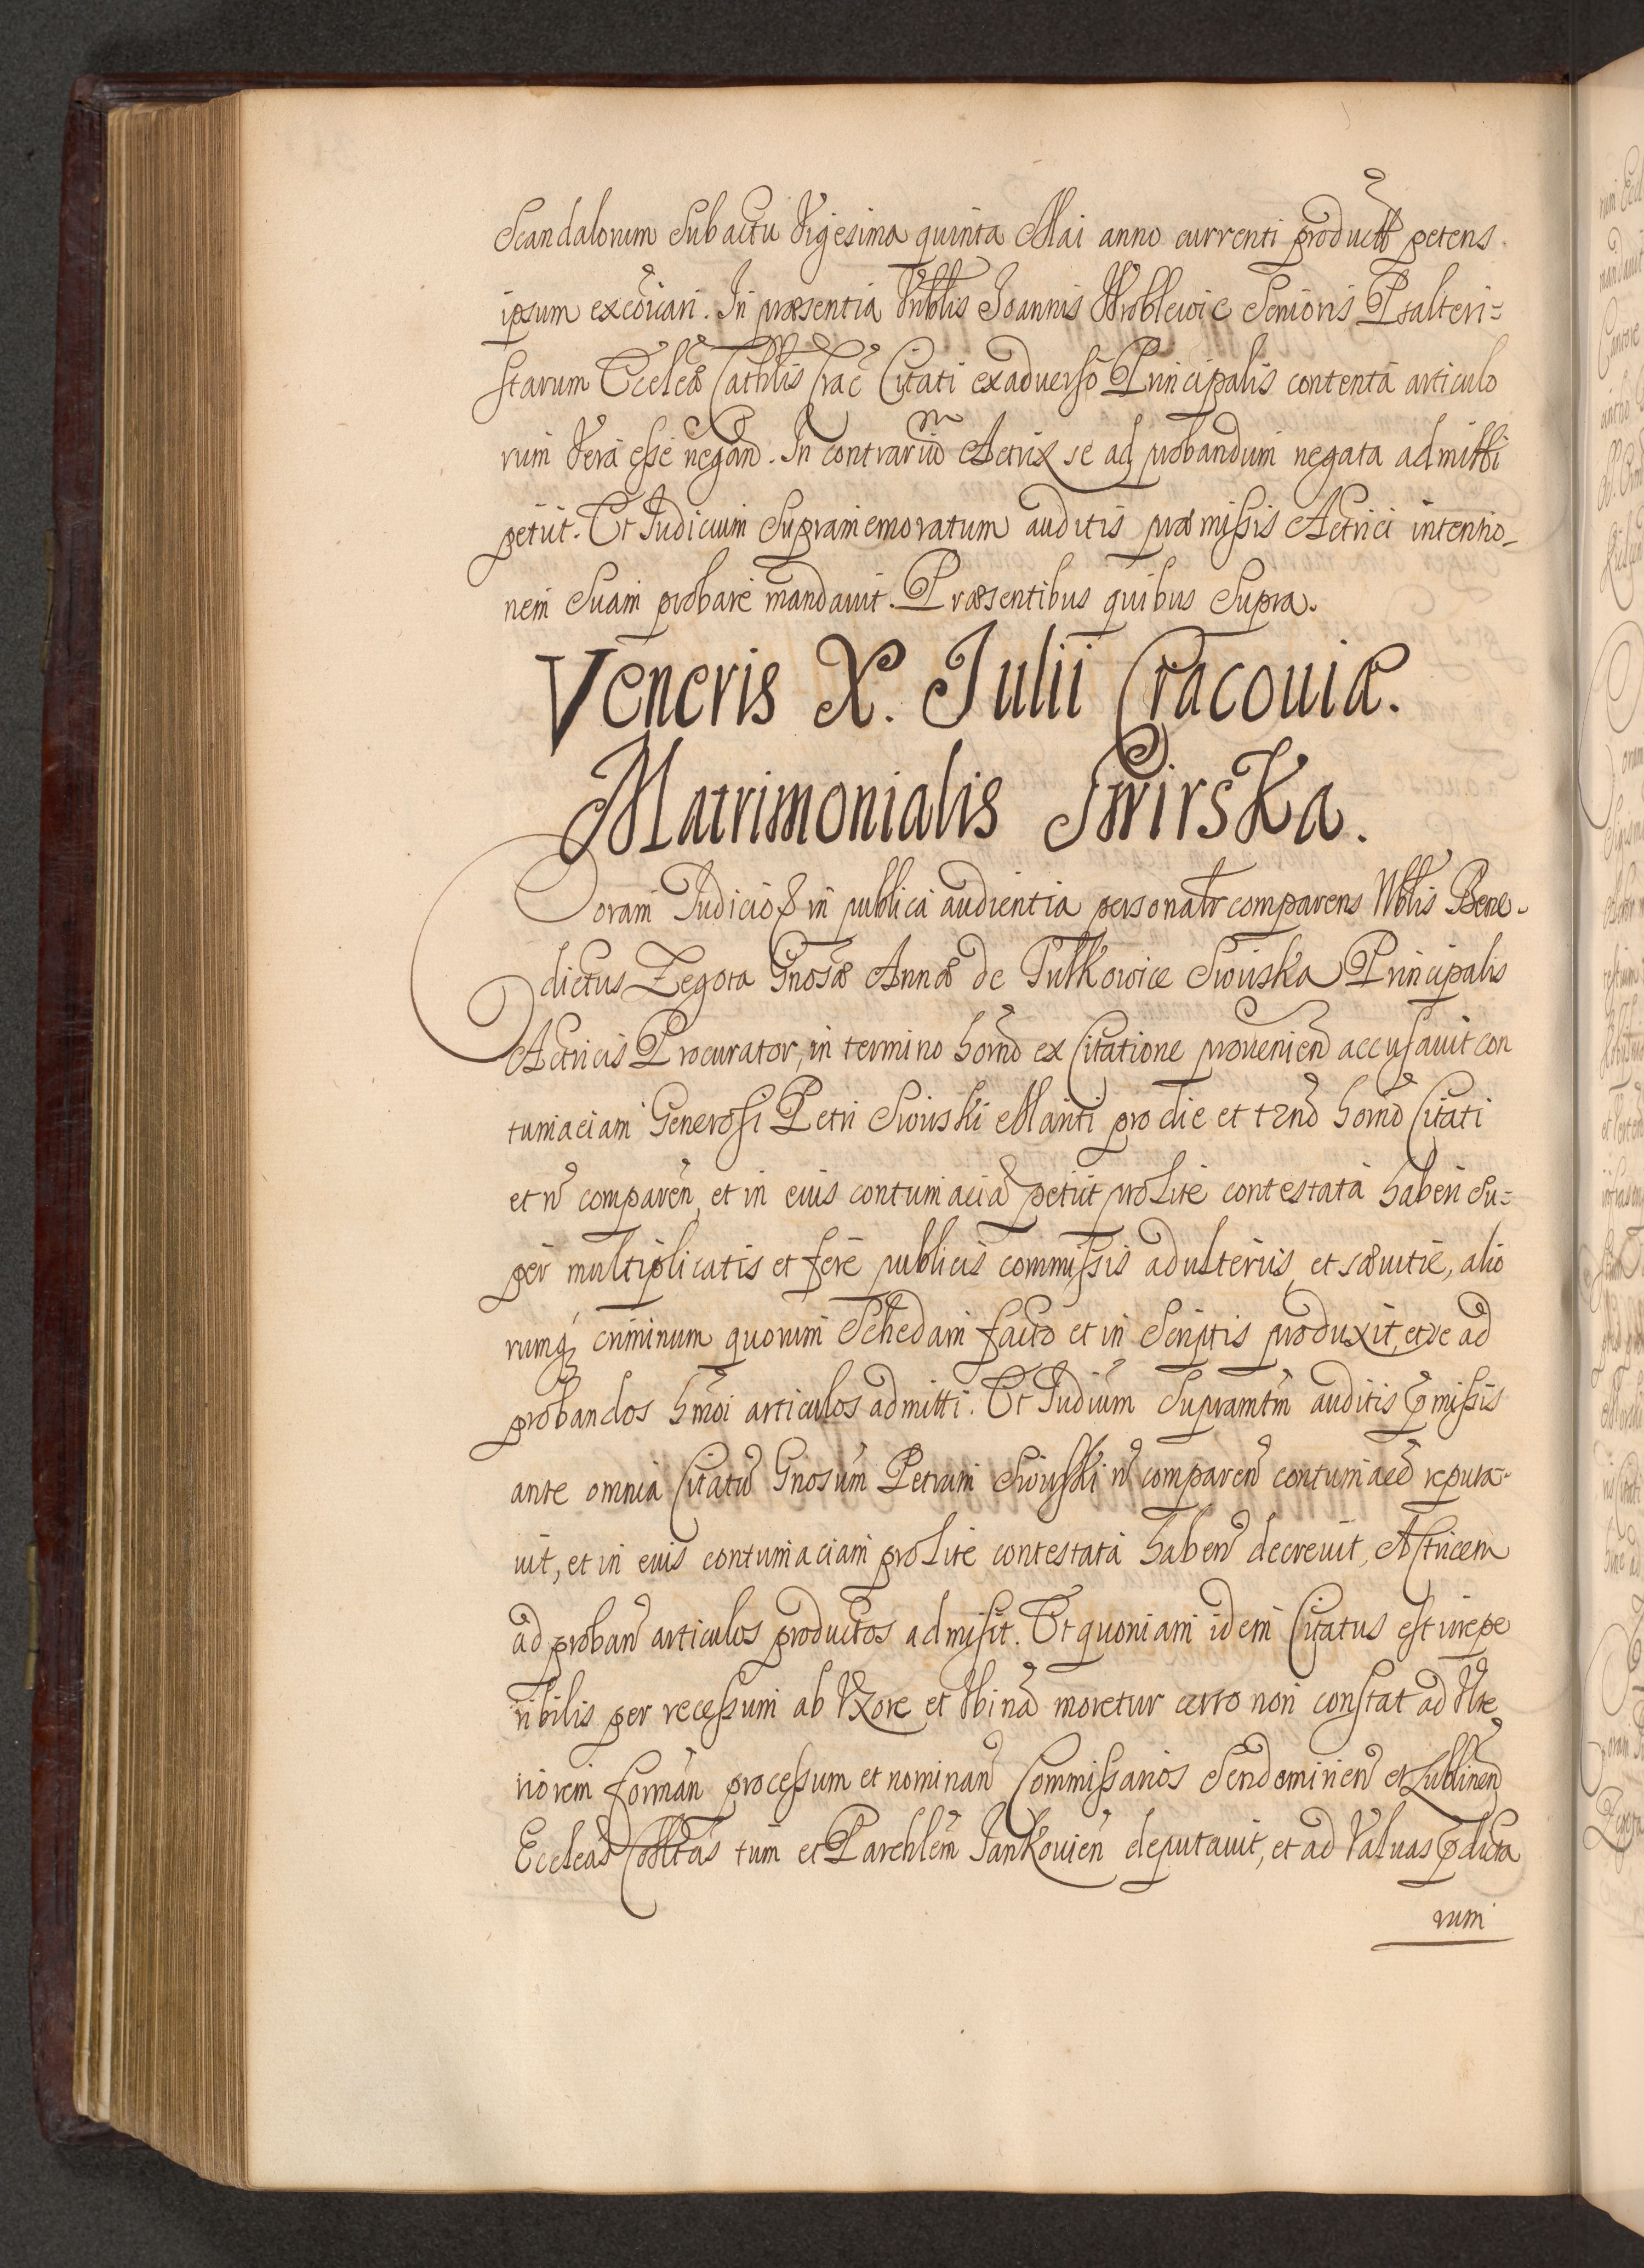 Scandalorum Sub actu Vigesima quinta Mai anno currenti product petens
ipsum excoicari. In præsentia Vnblis Joannis Wroblewic Senioris Psalteri=
starum Eccleæ Cathlis Crac Citati ex aduerso Principalis contenta articulo
rum Vera esse negan. In contrariu Actrix se ad probandum negata admitti
petiit. Et Iudicium Supramemoratum auditis præmissis Actrici intentio-
nem Suam probare mandauit. Præsentibus quibus Supra.
Veneris X. Julii Cracouiæ.
Matrimonialis Swirska.
Coram Iudicio & in publica audientia personalr comparens Nblis Bene-
dictus Zegota Gnosæ Annæ de Pulkowice Swirska Principalis
Actricis Procurator, in termino horno ex Citatione provenien accusauit con
tumaciam Generosi Petri Swirski Mariti pro die et trno horno Citati
et n comparen, et in eius contumacia petiit pro Lite contestata haberi Su=
per multiplicatis et fere publicis commissis adulteriis, et sæuitie, alio
rumq criminum quorum Schedam facto et in Scriptis produxit, et se ad
probandos hmoi articulos admitti. Et Iudium Supramtm auditis pmissis
ante omnia Citatu Gnosum Petrum Swirski n comparen contumace reputa-
uit, et in eius contumaciam pro Lite contestata haben decreuit, Actricem
ad proban articulos productos admisit. Et quoniam idem Citatus est irrepe
ribilis per recessum ab Vxore et Vbinam moretur certo non constat ad Vlte
riorem forman processum et nominan Commissarios Sendomirien et Lublinen
Eccleas Colltas tum et Parchlem Jankouien deputauit, et ad Valuas pdicta
rum